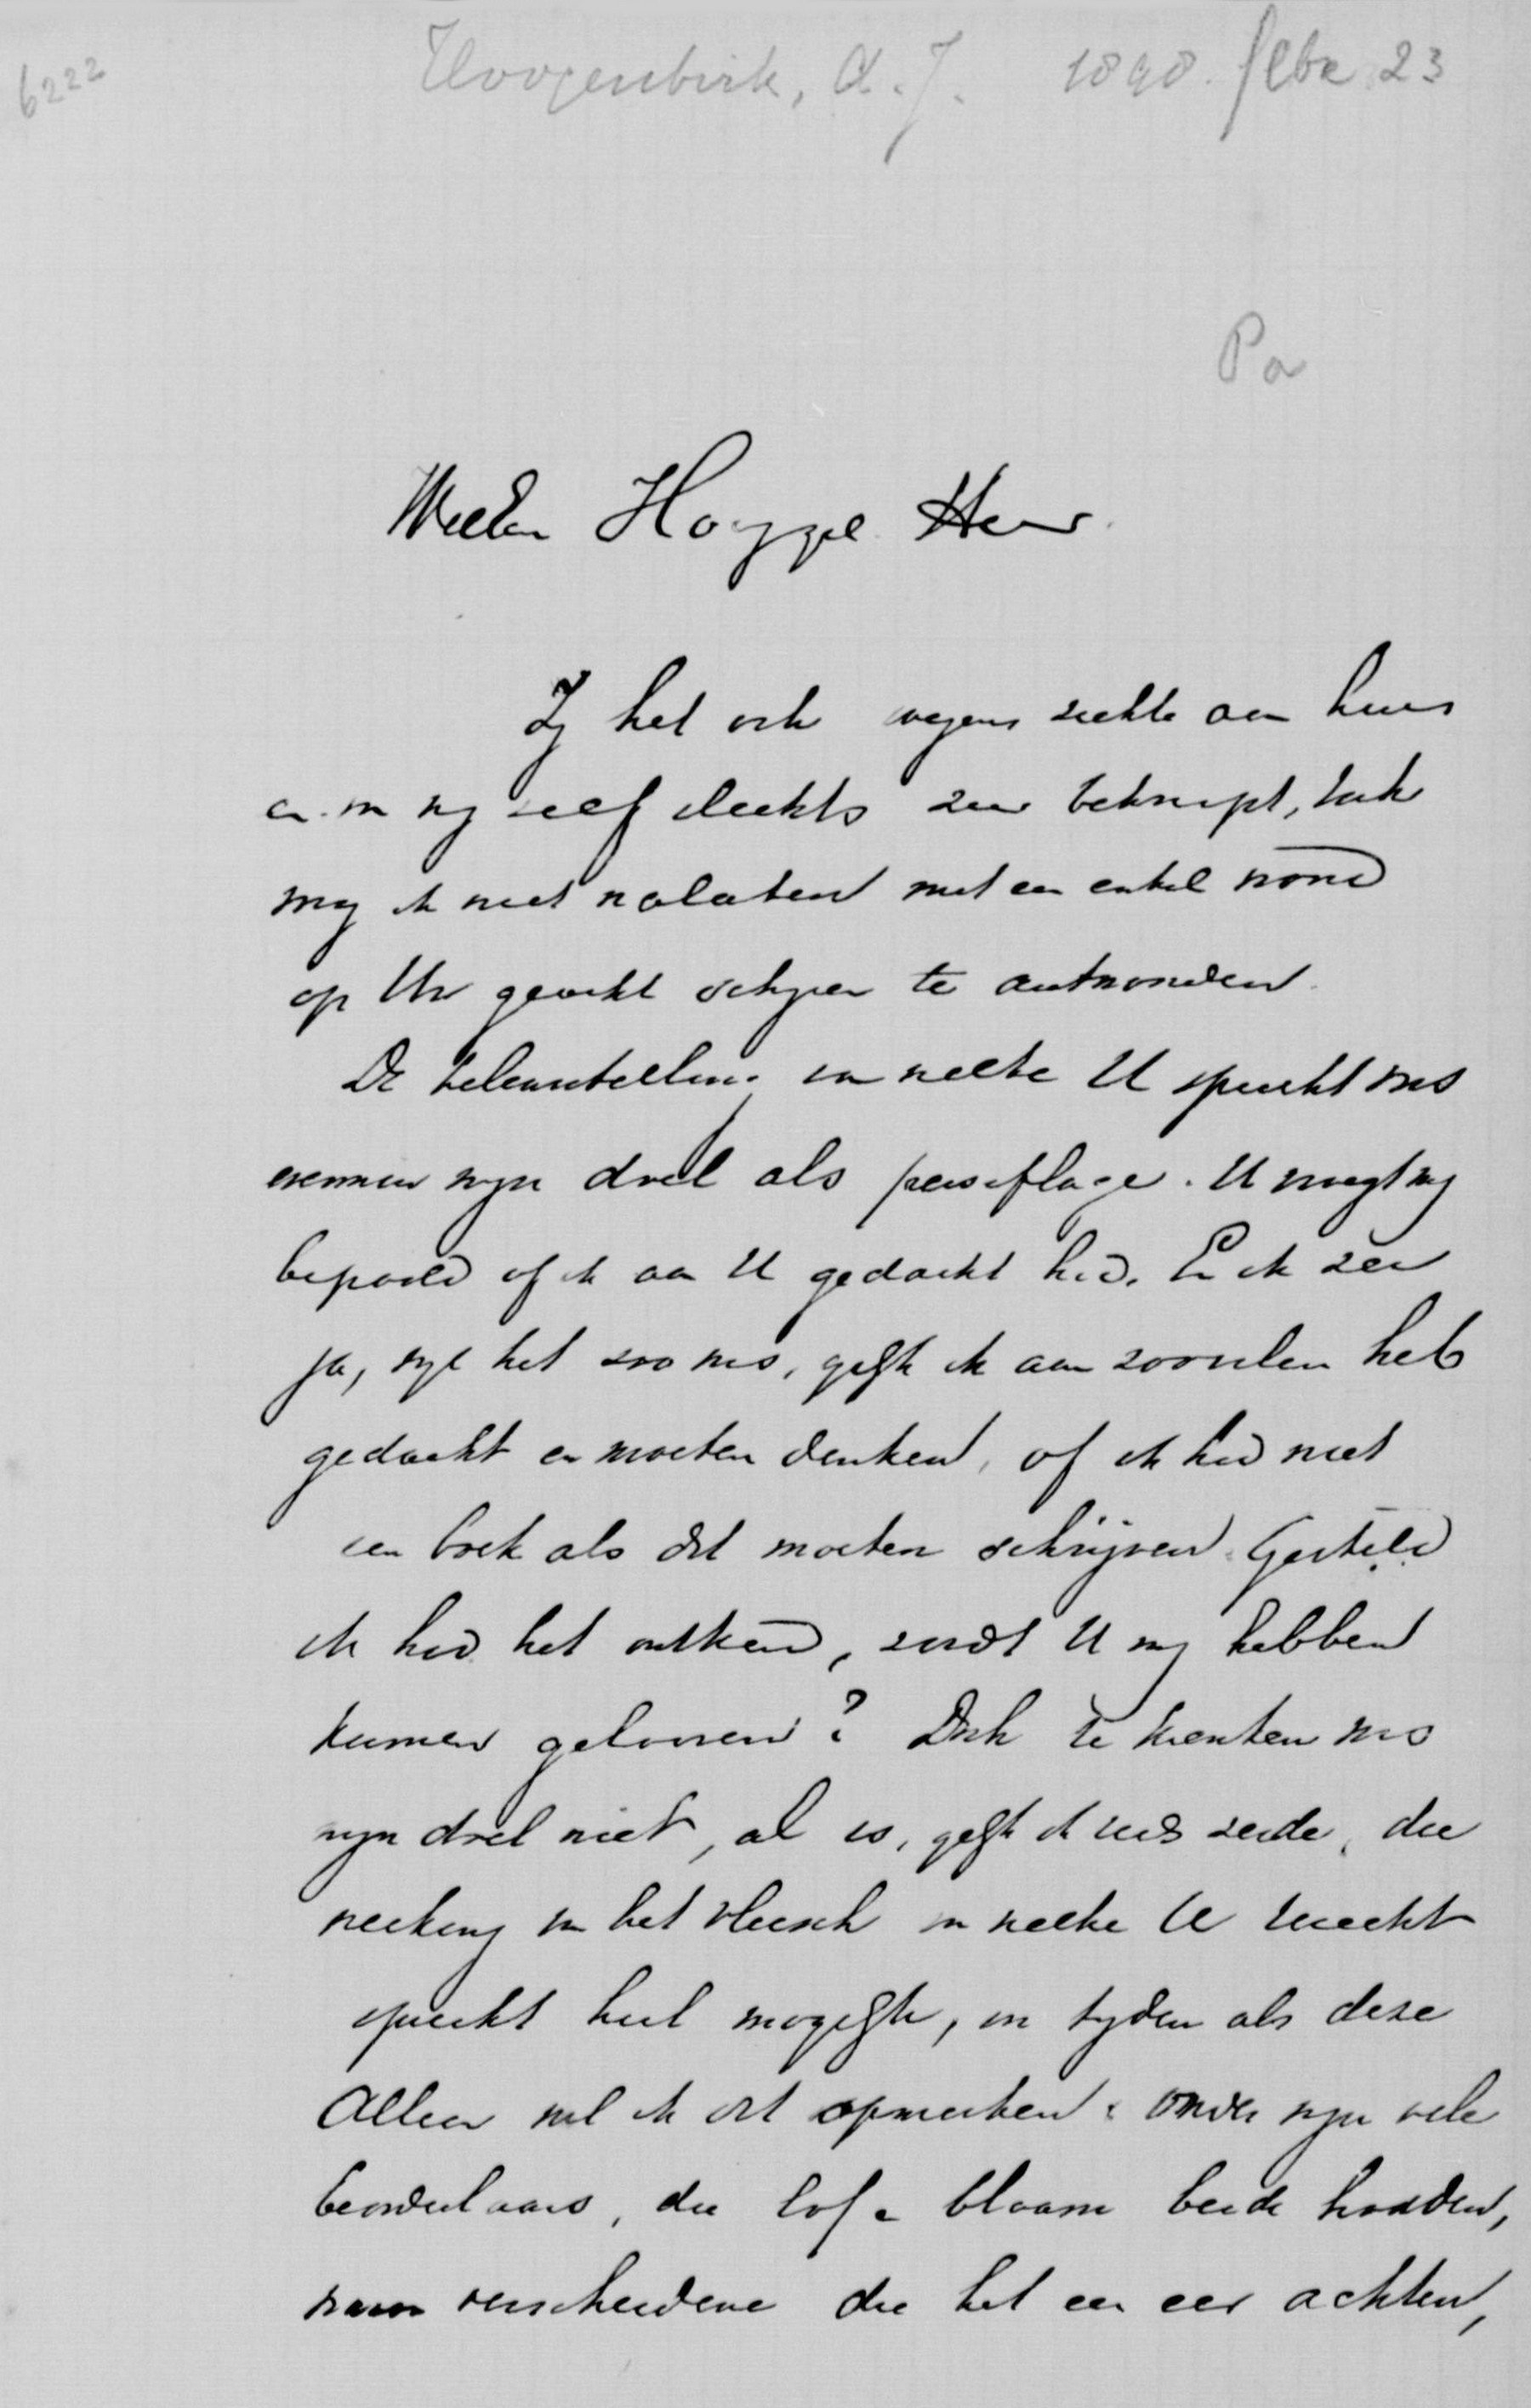 6222
Hoogenbirk, A. J. 1898. febr 23
Pa
WelEw Hooggel. Heer.
Zij het ook wegens ziekte aan huis
en in mij zelf slechts zeer beknopt, toch
mag ik niet nalaten met een enkel woord
op Uw geacht schrijven te antwoorden.
De teleurstelling van welke U spreekt was
evenmin mijn doel als persiflage. U vraagt mij
bepaald of ik aan U gedacht had. En ik zei
ja, wijl het zoo was, gelijk ik aan zoovelen heb
gedacht en moeten denken, of ik had niet
een boek als dit moeten schrijven. Gesteld
ik had het ontkend, zoudt U mij hebben
kunnen gelooven? Doch te krenken was
mijn doel niet, al is, gelijk ik reeds zeide, die
werking in het vleesch van welke U
spreekt heel mogelijk, in tijden als deze
Alleen wil ik dit opmerken: onder mijn vele
beoordelaars, die lof en blaam beide hadden,
waren verscheidene die het een eer achtten,